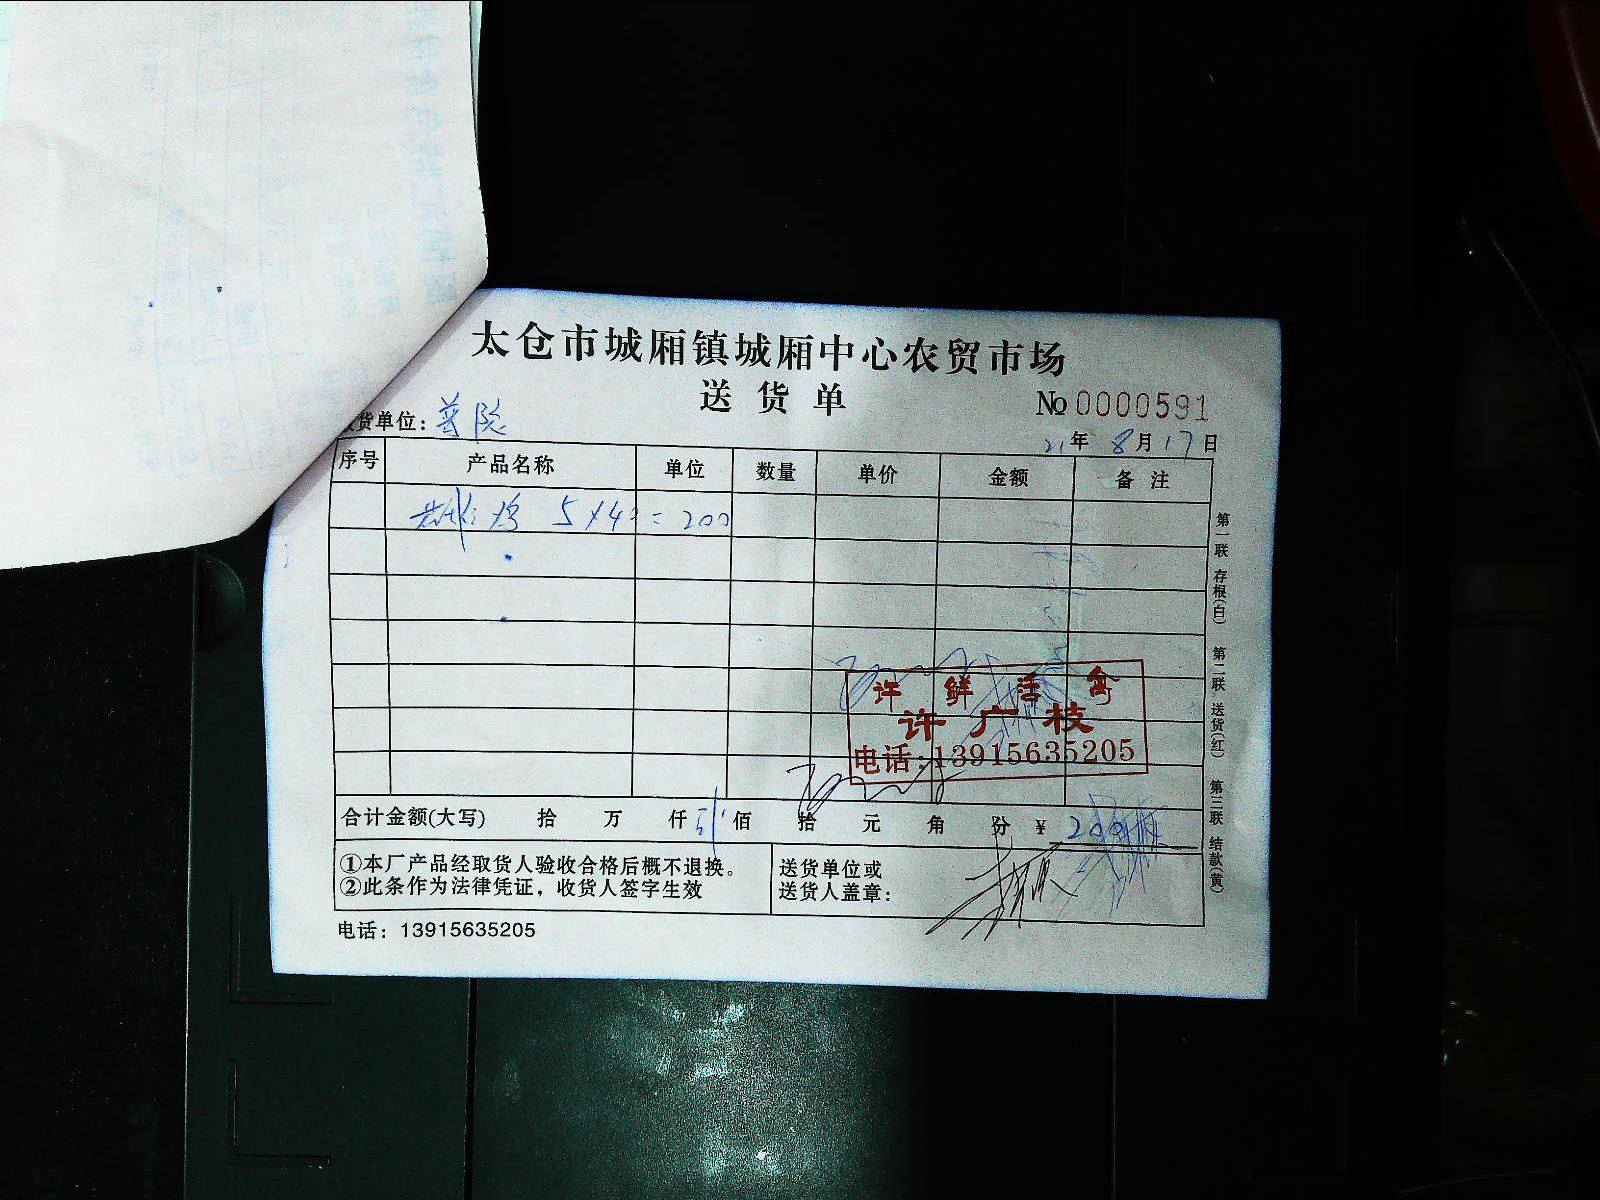 太仓市城厢镇城厢中心农贸市场
送货单
No 0000591
货单位：普陀
21年 8月17日
序号 产品名称 单位 数量 单价 金额 备注
5×40=200
许鲜活禽
许广枝
电话：13915635205
合计金额(大写) 拾 万 仟 佰 拾 元 角 分 ¥ 200
①本厂产品经取货人验收合格后概不退换。
②此条作为法律凭证，收货人签字生效
送货单位或
送货人盖章：
电话：13915635205
第一联 存根(白) 第二联 送货(红) 第三联 结款(黄)